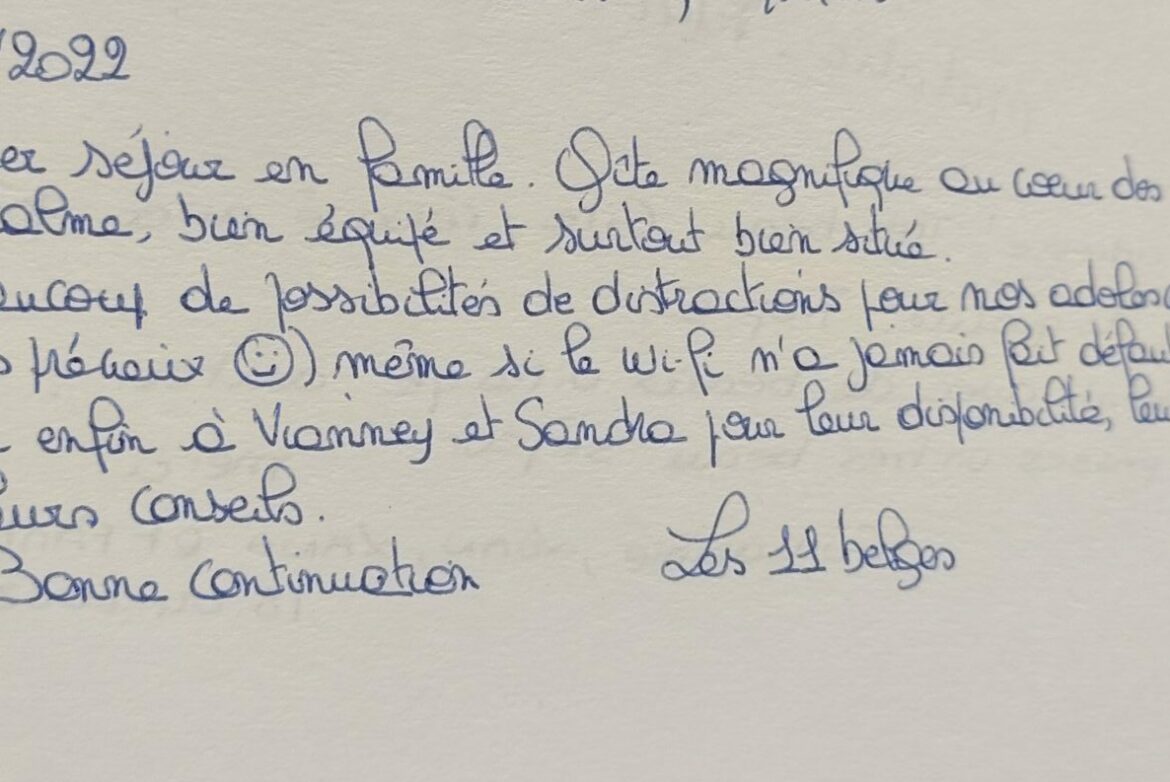 /2022
er séjour en famille. Gîte magnifique au coeur des
alme, bien équipé et surtout bien situé.
aucoup de possibilités de distractions pour nos adoles
s préciaux ☺) même si le wi-fi n'a jamais fait défaut
enfin à Vianney et Sandra pour leur disponibilité, leu
eurs conseils.
Bonne continuation
Les 11 belges